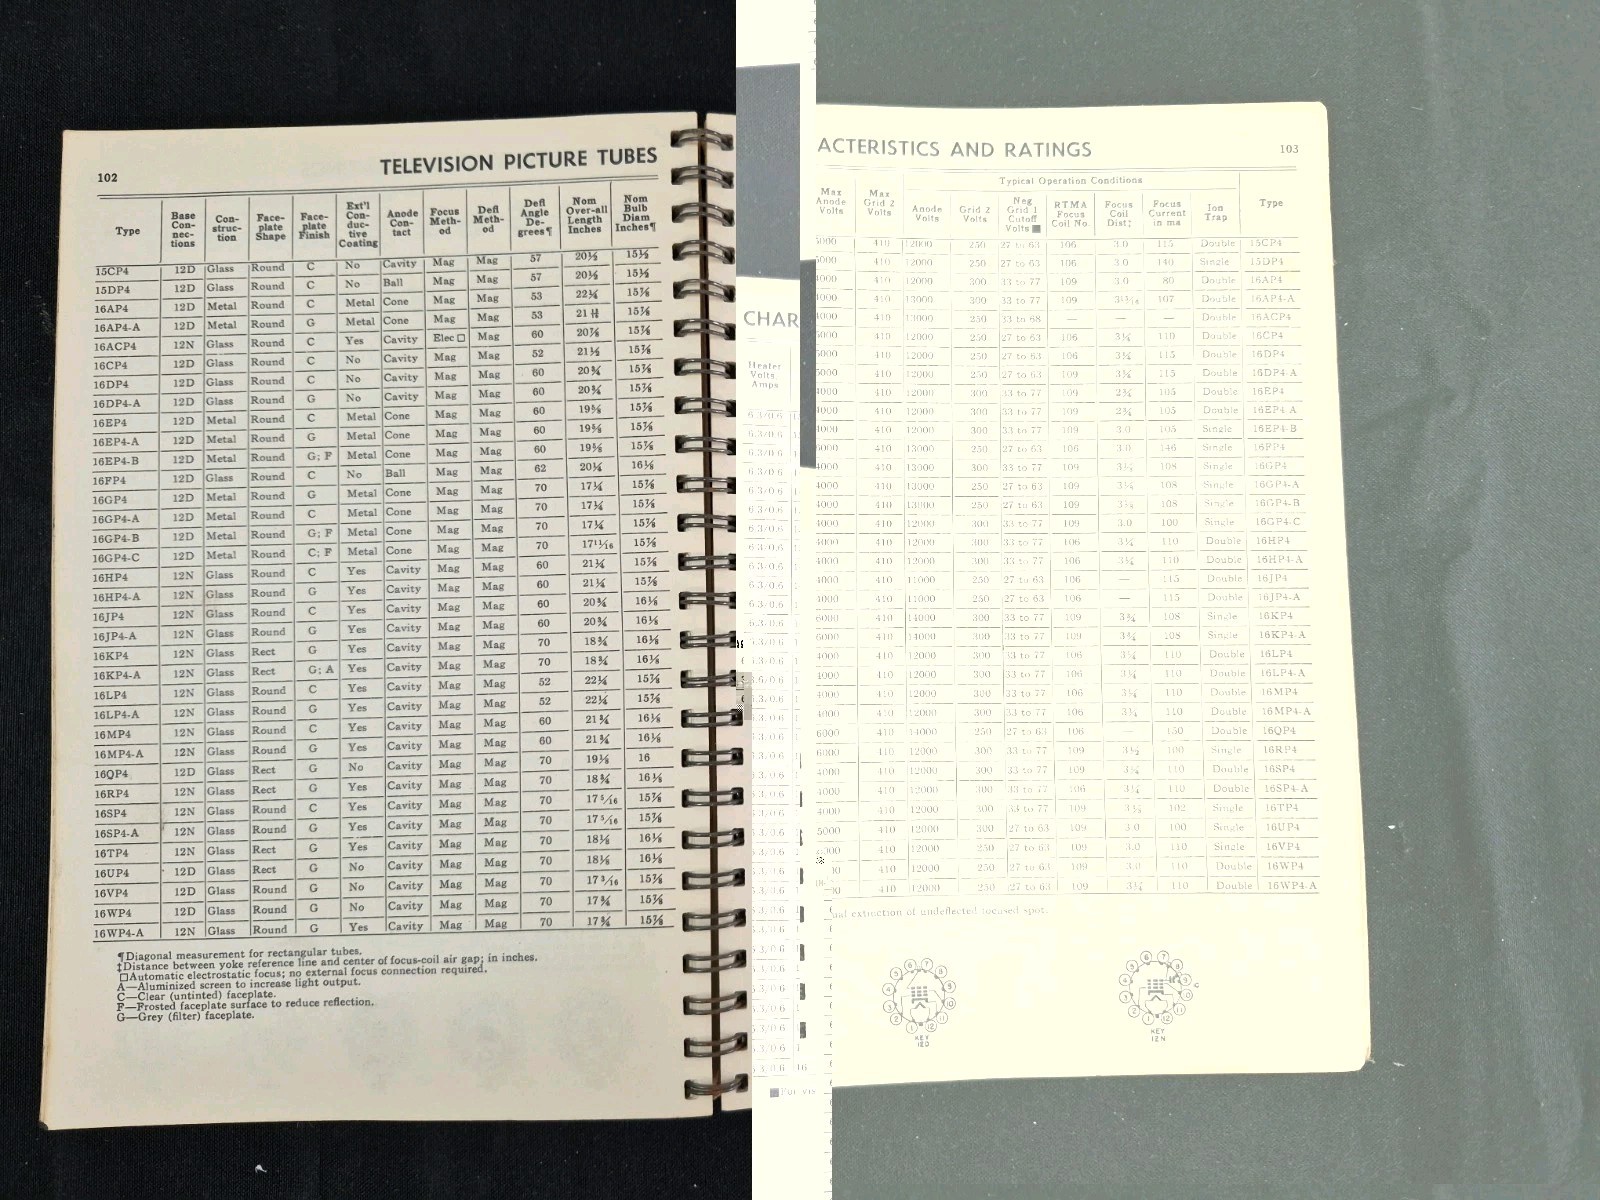 102
TELEVISION PICTURE TUBES
Type Base Con-nec-tions Con-struc-tion Face-plate Shape Face-plate Finish Ext'l Con-duc-tive Coating Anode Con-tact Focus Meth-od Defl Meth-od Defl Angle De-grees¶ Nom Over-all Length Inches Nom Bulb Diam Inches¶
15CP4 12D Glass Round C No Cavity Mag Mag 57
15DP4 12D Glass Round C No Ball Mag Mag 57
16AP4 12D Metal Round C Metal Cone Mag Mag 53 22¼ 15⅞
16AP4-A 12D Metal Round G Metal Cone Mag Mag 53 15⅞
16ACP4 12N Glass Round C Yes Cavity Elec□ Mag 60 20⅞ 15⅞
16CP4 12D Glass Round C No Cavity Mag Mag 52 21½ 15⅞
16DP4 12D Glass Round C No Cavity Mag Mag 60 20¾ 15⅞
16DP4-A 12D Glass Round G No Cavity Mag Mag 60 20¾ 15⅞
16EP4 12D Metal Round C Metal Cone Mag Mag 60 15⅞
16EP4-A 12D Metal Round G Metal Cone Mag Mag 60 15⅞
16EP4-B 12D Metal Round G; F Metal Cone Mag Mag 60 15⅞
16FP4 12D Glass Round C No Ball Mag Mag 62 20¼ 16⅛
16GP4 12D Metal Round G Metal Cone Mag Mag 70 15⅞
16GP4-A 12D Metal Round C Metal Cone Mag Mag 70 15⅞
16GP4-B 12D Metal Round G; F Metal Cone Mag Mag 70 15⅞
16GP4-C 12D Metal Round C; F Metal Cone Mag Mag 70 17 11/16 15⅞
16HP4 12N Glass Round C Yes Cavity Mag Mag 60 21¼ 15⅞
16HP4-A 12N Glass Round G Yes Cavity Mag Mag 60 21¼ 15⅞
16JP4 12N Glass Round C Yes Cavity Mag Mag 60 20¾ 16⅛
16JP4-A 12N Glass Round G Yes Cavity Mag Mag 60 20¾ 16⅛
16KP4 12N Glass Rect G Yes Cavity Mag Mag 70 18¾ 16⅛
16KP4-A 12N Glass Rect G; A Yes Cavity Mag Mag 70 18¾ 16⅛
16LP4 12N Glass Round C Yes Cavity Mag Mag 52 22¼ 15⅞
16LP4-A 12N Glass Round G Yes Cavity Mag Mag 52 22¼ 15⅞
16MP4 12N Glass Round C Yes Cavity Mag Mag 60 21¾ 16⅛
16MP4-A 12N Glass Round G Yes Cavity Mag Mag 60 21¾ 16⅛
16QP4 12D Glass Rect G No Cavity Mag Mag 70 19⅛ 16
16RP4 12N Glass Rect G Yes Cavity Mag Mag 70 18¾ 16⅛
16SP4 12N Glass Round C Yes Cavity Mag Mag 70 17 5/16 15⅞
16SP4-A 12N Glass Round G Yes Cavity Mag Mag 70 17 5/16 15⅞
16TP4 12N Glass Rect G Yes Cavity Mag Mag 70 18⅛ 16⅛
16UP4 12D Glass Rect G No Cavity Mag Mag 70 18⅛ 16⅛
16VP4 12D Glass Round G No Cavity Mag Mag 70 17 3/16 15⅞
16WP4 12D Glass Round G No Cavity Mag Mag 70 17¾ 15⅞
16WP4-A 12N Glass Round G Yes Cavity Mag Mag 70 17¾ 15⅞
¶Diagonal measurement for rectangular tubes.
‡Distance between yoke reference line and center of focus-coil air gap; in inches.
□Automatic electrostatic focus; no external focus connection required.
A—Aluminized screen to increase light output.
C—Clear (untinted) faceplate.
F—Frosted faceplate surface to reduce reflection.
G—Grey (filter) faceplate.
CHAR
Heater Volts. Amps
6.3/0.6
6.3/0.6
6.3/0.6
6.3/0.6
6.3/0.6
6.3/0.6
6.3/0.6
6.3/0.6
ACTERISTICS AND RATINGS
103
Typical Operation Conditions
Max Anode Volts Max Grid 2 Volts Anode Volts Grid 2 Volts Neg Grid 1 Cutoff Volts■ RTMA Focus Coil No. Focus Coil Dist‡ Focus Current in ma Ion Trap Type
410 12000 250 27 to 63 106 3.0 115 Double 15CP4
410 12000 250 27 to 63 106 3.0 140 Single 15DP4
410 12000 300 33 to 77 109 3.0 80 Double 16AP4
410 13000 300 33 to 77 109 107 Double 16AP4-A
410 13000 250 33 to 68 — — — Double 16ACP4
410 12000 250 27 to 63 106 110 Double 16CP4
410 12000 250 27 to 63 106 115 Double 16DP4
410 12000 250 27 to 63 109 115 Double 16DP4-A
410 12000 300 33 to 77 109 2¾ 105 Double 16EP4
410 12000 300 33 to 77 109 2¾ 105 Double 16EP4-A
410 12000 300 33 to 77 109 3.0 105 Single 16EP4-B
410 13000 250 27 to 63 106 3.0 146 Single 16FP4
410 13000 300 33 to 77 109 108 Single 16GP4
410 13000 250 27 to 63 109 108 Single 16GP4-A
410 13000 250 27 to 63 109 108 Single 16GP4-B
410 12000 300 33 to 77 109 3.0 100 Single 16GP4-C
410 12000 300 33 to 77 106 110 Double 16HP4
410 12000 300 33 to 77 106 110 Double 16HP4-A
410 11000 250 27 to 63 106 — 115 Double 16JP4
410 11000 250 27 to 63 106 — 115 Double 16JP4-A
410 14000 300 33 to 77 109 108 Single 16KP4
410 14000 300 33 to 77 109 108 Single 16KP4-A
410 12000 300 33 to 77 106 110 Double 16LP4
410 12000 300 33 to 77 106 110 Double 16LP4-A
410 12000 300 33 to 77 106 110 Double 16MP4
410 12000 300 33 to 77 106 110 Double 16MP4-A
410 14000 250 27 to 63 106 — 150 Double 16QP4
410 12000 300 33 to 77 109 100 Single 16RP4
410 12000 300 33 to 77 109 110 Double 16SP4
410 12000 300 33 to 77 106 110 Double 16SP4-A
410 12000 300 33 to 77 109 102 Single 16TP4
410 12000 300 27 to 63 109 3.0 100 Single 16UP4
410 12000 250 27 to 63 109 3.0 110 Single 16VP4
410 12000 250 27 to 63 109 3.0 110 Double 16WP4
410 12000 250 27 to 63 109 110 Double 16WP4-A
■For vis
ual extinction of undeflected focused spot.
KEY
12D
KEY
12N